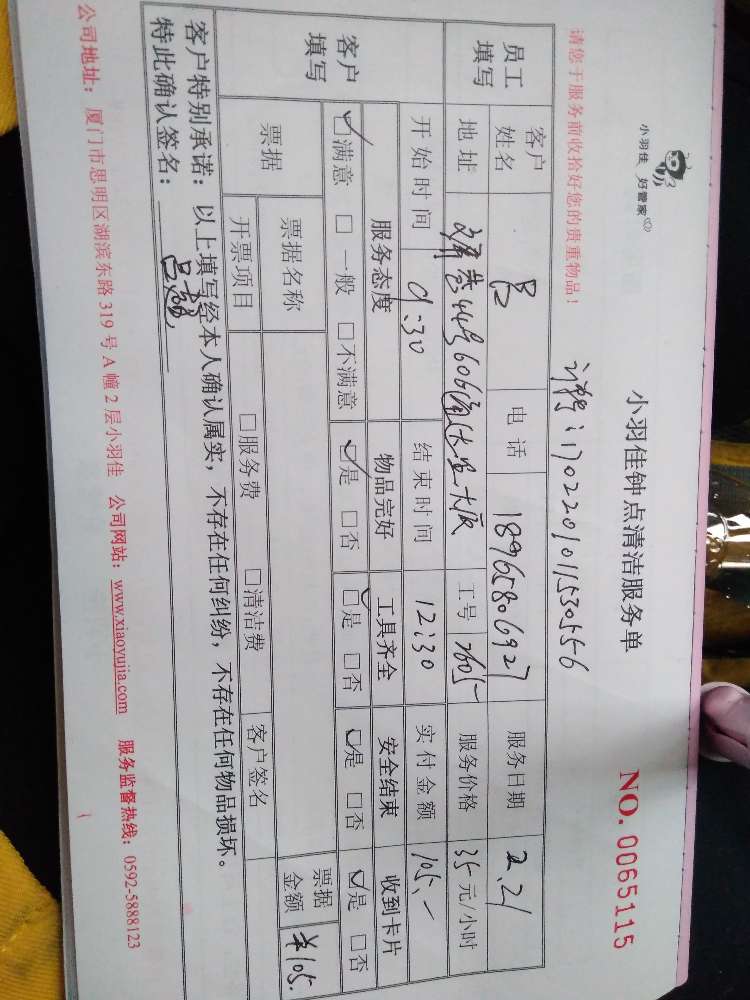 小羽佳 好管家
小羽佳钟点清洁服务单
NO. 0065115
请您于服务前收拾好您的贵重物品!
170220101153055 6
员工填写
客户姓名 吕 电话 18965806927 服务日期 2.21
地址 44号606 工号 2605 服务价格 35元/小时
开始时间 9:30 结束时间 12:30 实付金额 105.-
客户填写
服务态度 物品完好 工具齐全 安全结束 收到卡片
☑满意 □一般 □不满意 ☑是 □否 ☑是 □否 ☑是 □否 ☑是 □否
票据 票据名称 票据金额 ¥105.
开票项目 □服务费 □清洁费 客户签名
客户特别承诺:以上填写经本人确认属实,不存在任何纠纷,不存在任何物品损坏。
特此确认签名:
公司地址:厦门市思明区湖滨东路319号A幢2层小羽佳 公司网站:www.xiaoyujia.com 服务监督热线:0592-5888123